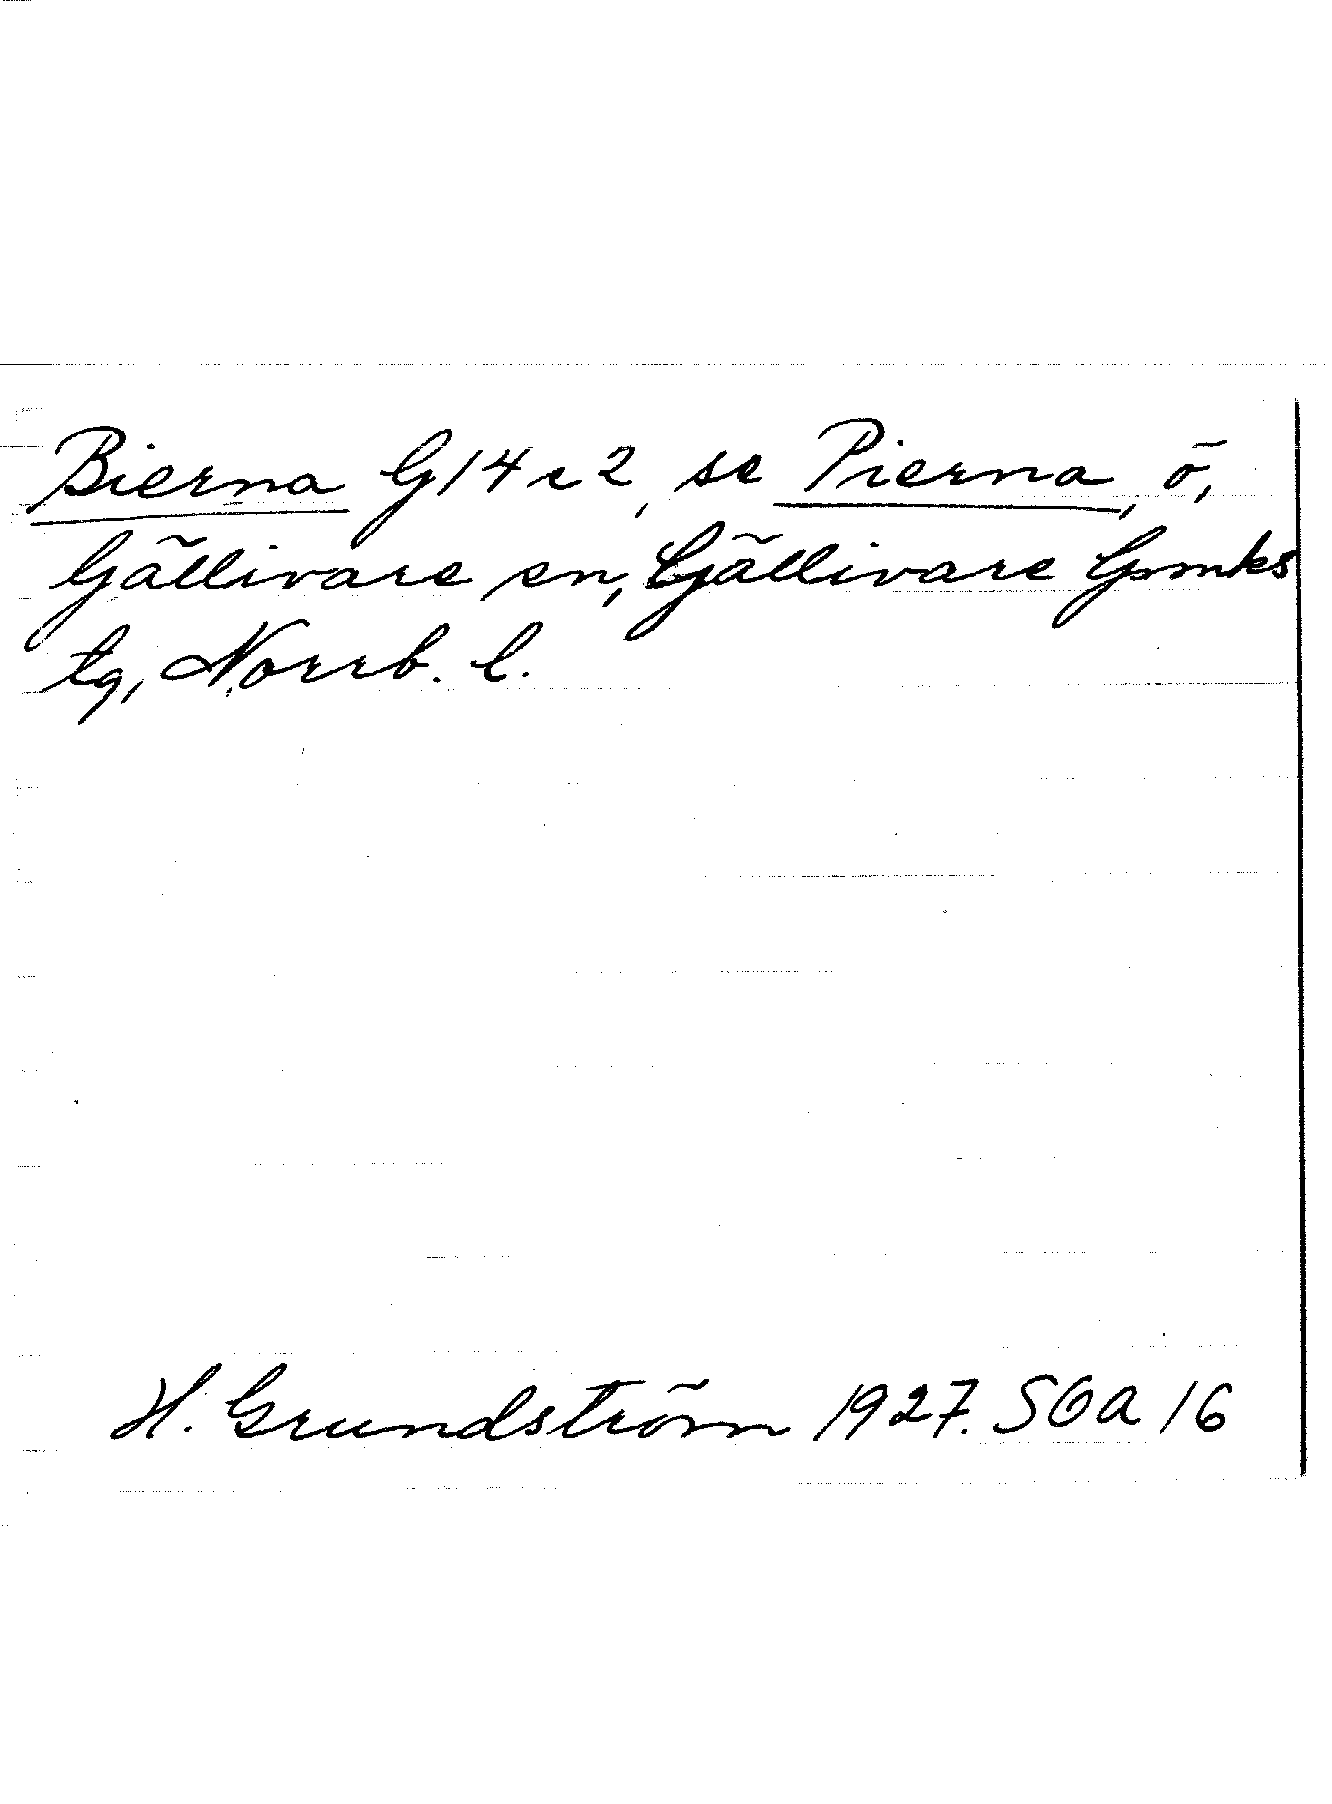 Bierna G14c2, se Pierna, ö,
Gällivare sn, Gällivare Lpmks
tg, Norrb. l.
H. Grundström 1927. SOA 16